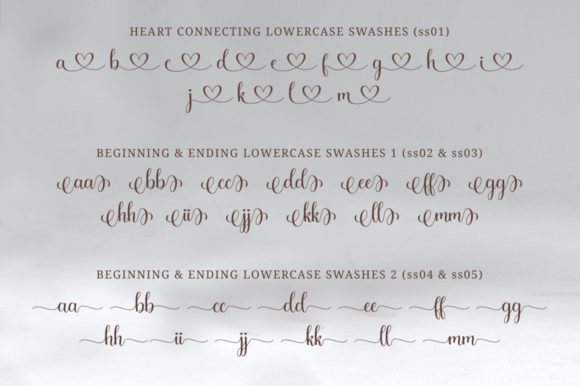 HEART CONNECTING LOWERCASE SWASHES (ss01)
a b c d e f g h i
j k l m
BEGINNING & ENDING LOWERCASE SWASHES 1 (ss02 & ss03)
aa bb cc dd ee ff gg
hh ii jj kk ll mm
BEGINNING & ENDING LOWERCASE SWASHES 2 (ss04 & ss05)
aa bb cc dd ee ff gg
hh ii jj kk ll mm